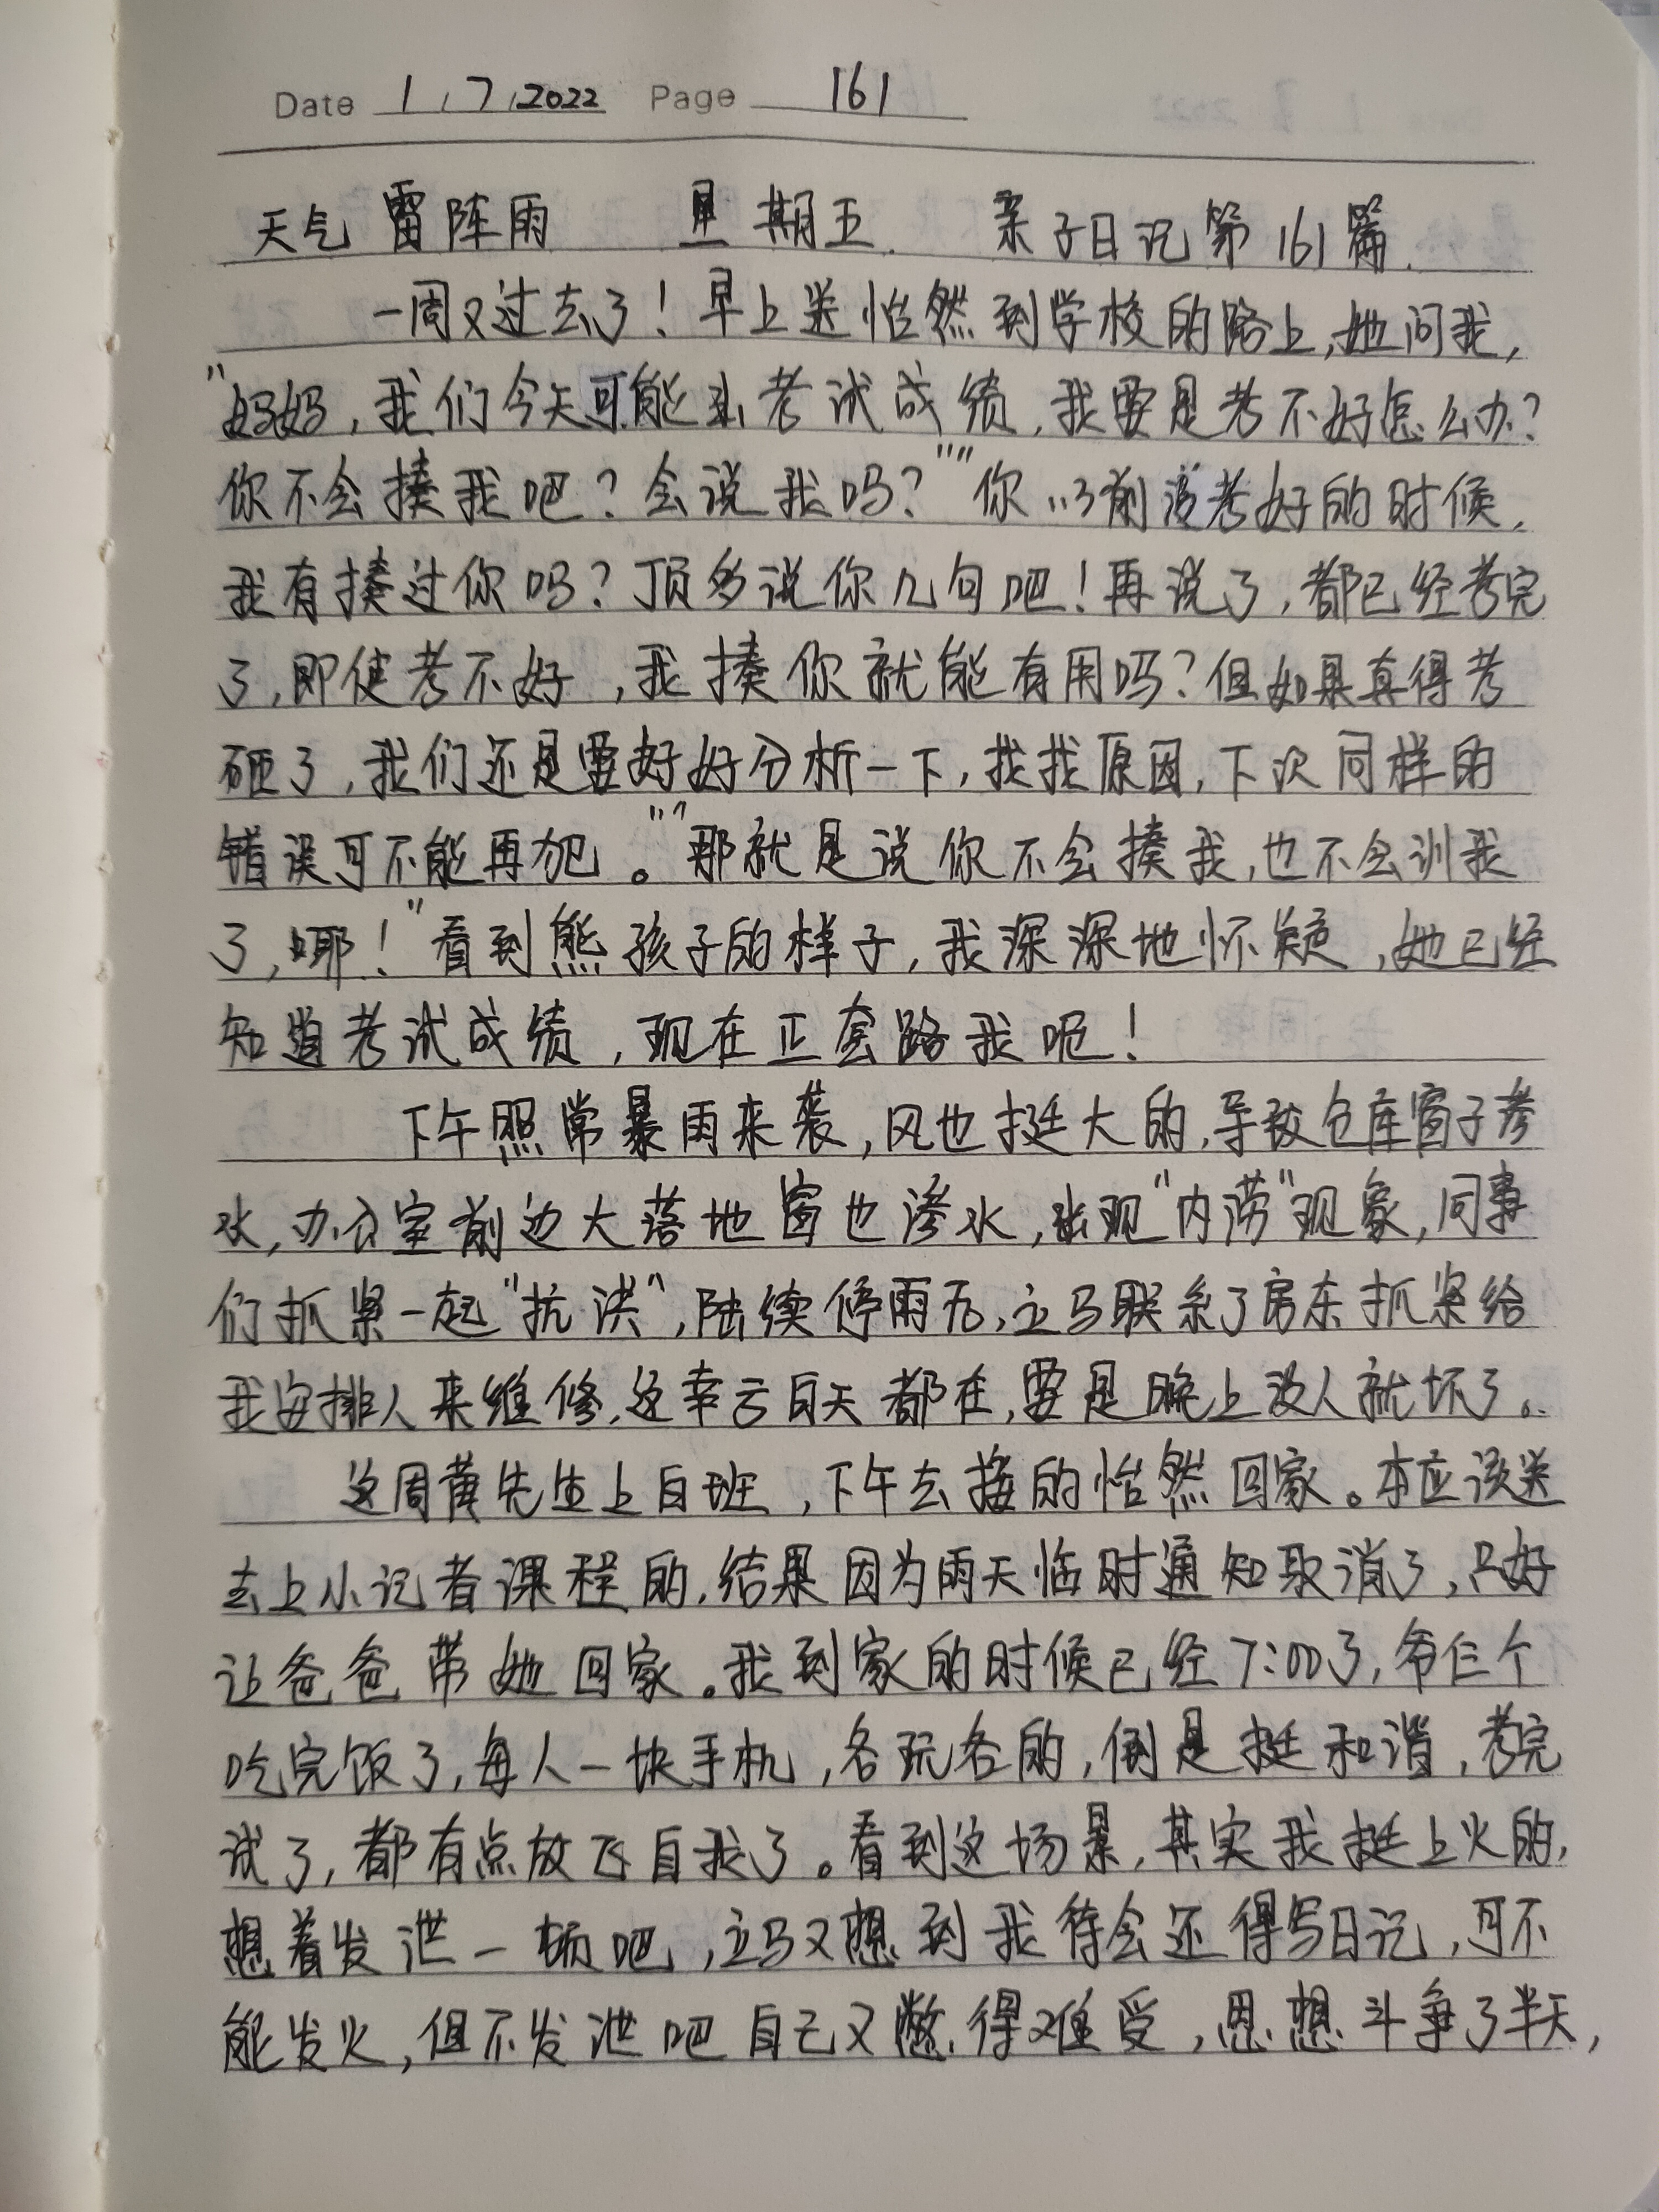 Date 1 / 7 / 2022 Page 161
天气 雷阵雨 星期五. 亲子日记第161篇.
一周又过去了！早上送怡然到学校的路上,她问我,
"妈妈,我们今天可能出考试成绩,我要是考不好怎么办?
你不会揍我吧？会说我吗？""你以前没考好的时候,
我有揍过你吗？顶多说你几句吧！再说了,都已经考完
了,即使考不好,我揍你就能有用吗？但如果真得考
砸了,我们还是要好好分析一下,找找原因,下次同样的
错误可不能再犯。""那就是说你不会揍我,也不会训我
了,耶！"看到熊孩子的样子,我深深地怀疑,她已经
知道考试成绩,现在正套路我呢！
下午照常暴雨来袭,风也挺大的,导致仓库窗子参
水,办公室前边大落地窗也渗水,出现"内涝"现象,同事
们抓紧一起"抗洪",陆续停雨后,立马联系了房东抓紧给
我安排人来维修,这幸亏白天都在,要是晚上没人就坏了。
这周黄先生上白班,下午去接的怡然回家。本应该送
去上小记者课程的,结果因为雨天临时通知取消了,只好
让爸爸带她回家。我到家的时候已经7:00了,爷仨个
吃完饭了,每人一块手机,各玩各的,倒是挺和谐,考完
试了,都有点放飞自我了。看到这场景,其实我挺上火的,
想着发泄一顿吧,立马又想到我待会还得写日记,可不
能发火,但不发泄吧自己又憋得难受,思想斗争了半天,